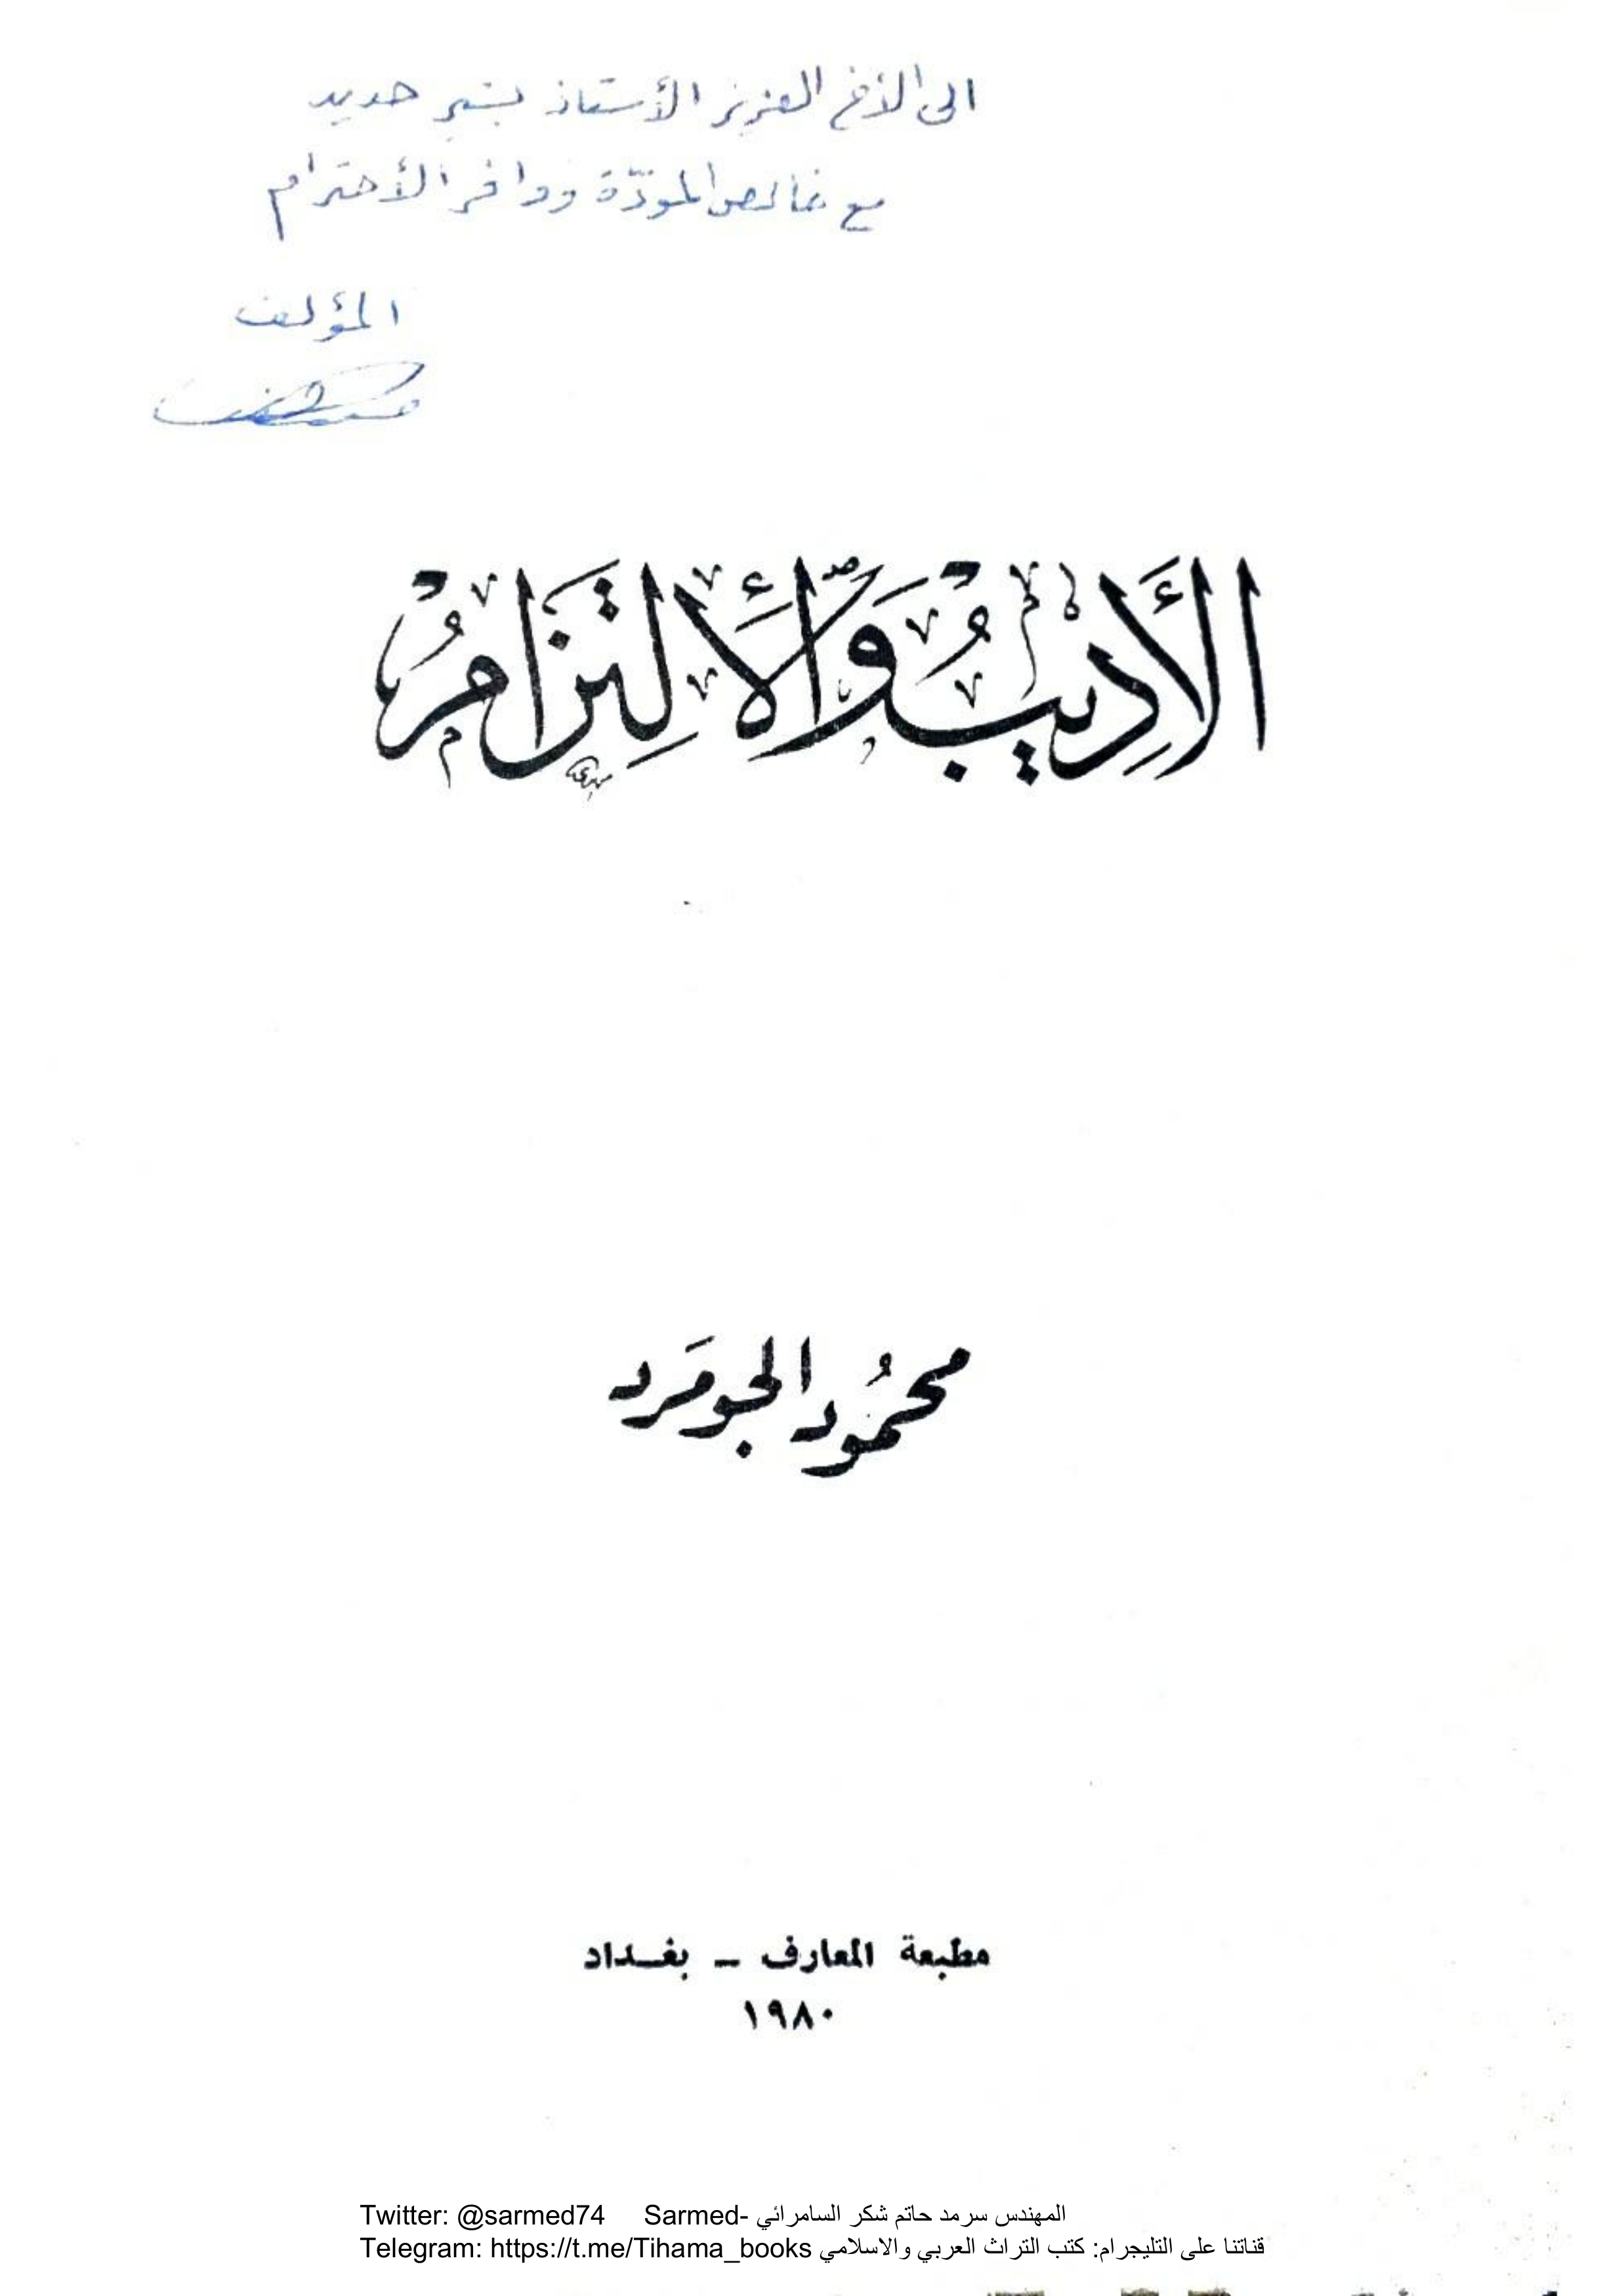 الى الأخ العزيز الأستاذ بشير حديد
مع خالص المودّة ووافر الأحترام
المؤلف
الأديب والألتزام
محمود الجومرد
مطبعة المعارف – بغـداد
١٩٨٠
Twitter: @sarmed74 Sarmed- المهندس سرمد حاتم شكر السامرائي
Telegram: https://t.me/Tihama_books قناتنا على التليجرام: كتب التراث العربي والاسلامي